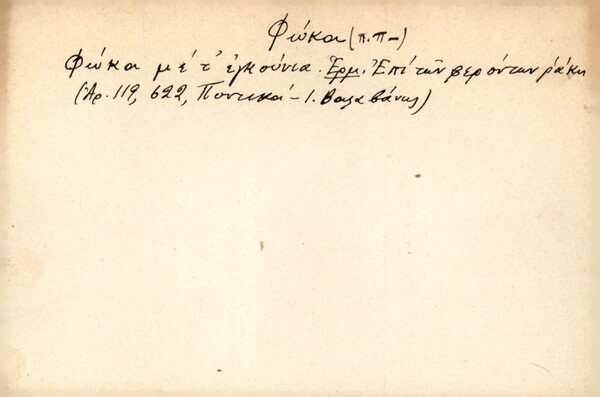 Φώκα (π.π-)
Φώκα μέ τ' ἐγκούνια. Ἑρμ. Ἐπί τῶν φερόντων ράκη
(Ἀρ. 119, 622, Ποντικά - Ι. Βαλαβάνης)